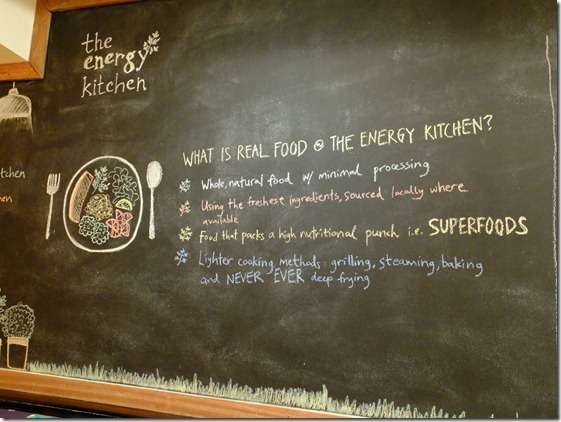 the
energy
kitchen
WHAT IS REAL FOOD @ THE ENERGY KITCHEN?
Whole, natural food w/ minimal processing
Using the freshest ingredients, sourced locally where
available
Food that packs a high nutritional punch i.e. SUPERFOODS
Lighter cooking methods: grilling, steaming, baking
and NEVER EVER deep frying